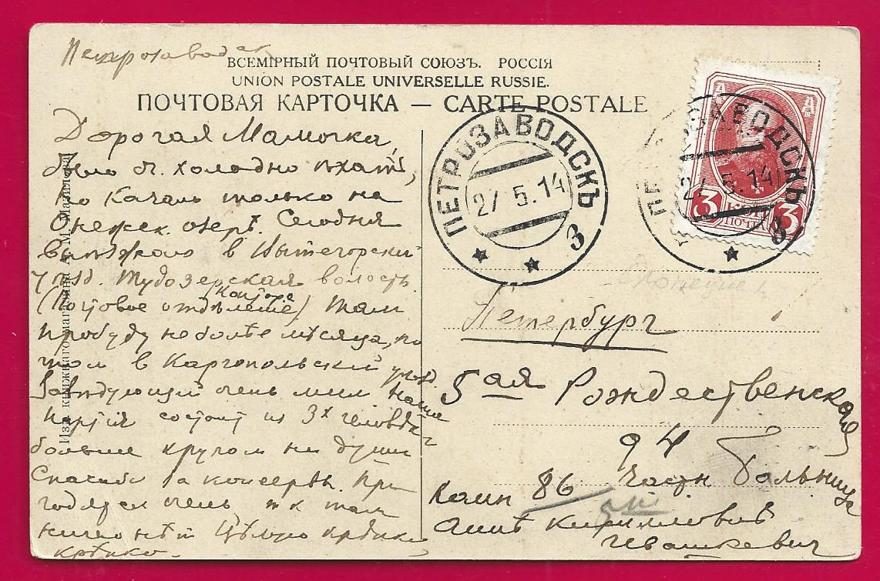 Петрозаводск
ВСЕМІРНЫЙ ПОЧТОВЫЙ СОЮЗЪ. РОССІЯ
UNION POSTALE UNIVERSELLE RUSSIE.
ПОЧТОВАЯ КАРТОЧКА — CARTE POSTALE
Дорогая Мамочка,
было холодно ѣхать,
но качало только на
Онежск. озерѣ. Сегодня
выѣзжаю в Вытегорский
уѣзд. Тудозерская волость
(Почтовое отдѣление) там
контора
пробуду не болѣе мѣсяца, по
том в Каргопольский уѣзд.
Завѣдующий очень мил наша
партия состоит из 3х человѣк
больше кругом ни души
Спасибо за консервы. При
годятся очень, т к там
ничего нѣт Цѣлую крѣпко
крѣпко.
Изд. книжнаго магазина
ПЕТРОЗАВОДСКЪ
27.5.14
3
ПЕТРОЗАВОДСКЪ
27.5.14
3
3 КОП 3
ПОЧТА
Петербург
5ая Рождественская
94 больница
86
Аннѣ Кирилловнѣ
Ивашкевич